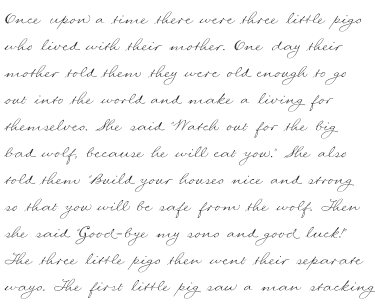 Once upon a time there were three little pigs
who lived with their mother. One day their
mother told them they were old enough to go
out into the world and make a living for
themselves. She said "Watch out for the big
bad wolf, because he will eat you." She also
told them "Build your houses nice and strong
so that you will be safe from the wolf. Then
she said "Good-bye my sons and good luck!"
The three little pigs then went their separate
ways. The first little pig saw a man stacking